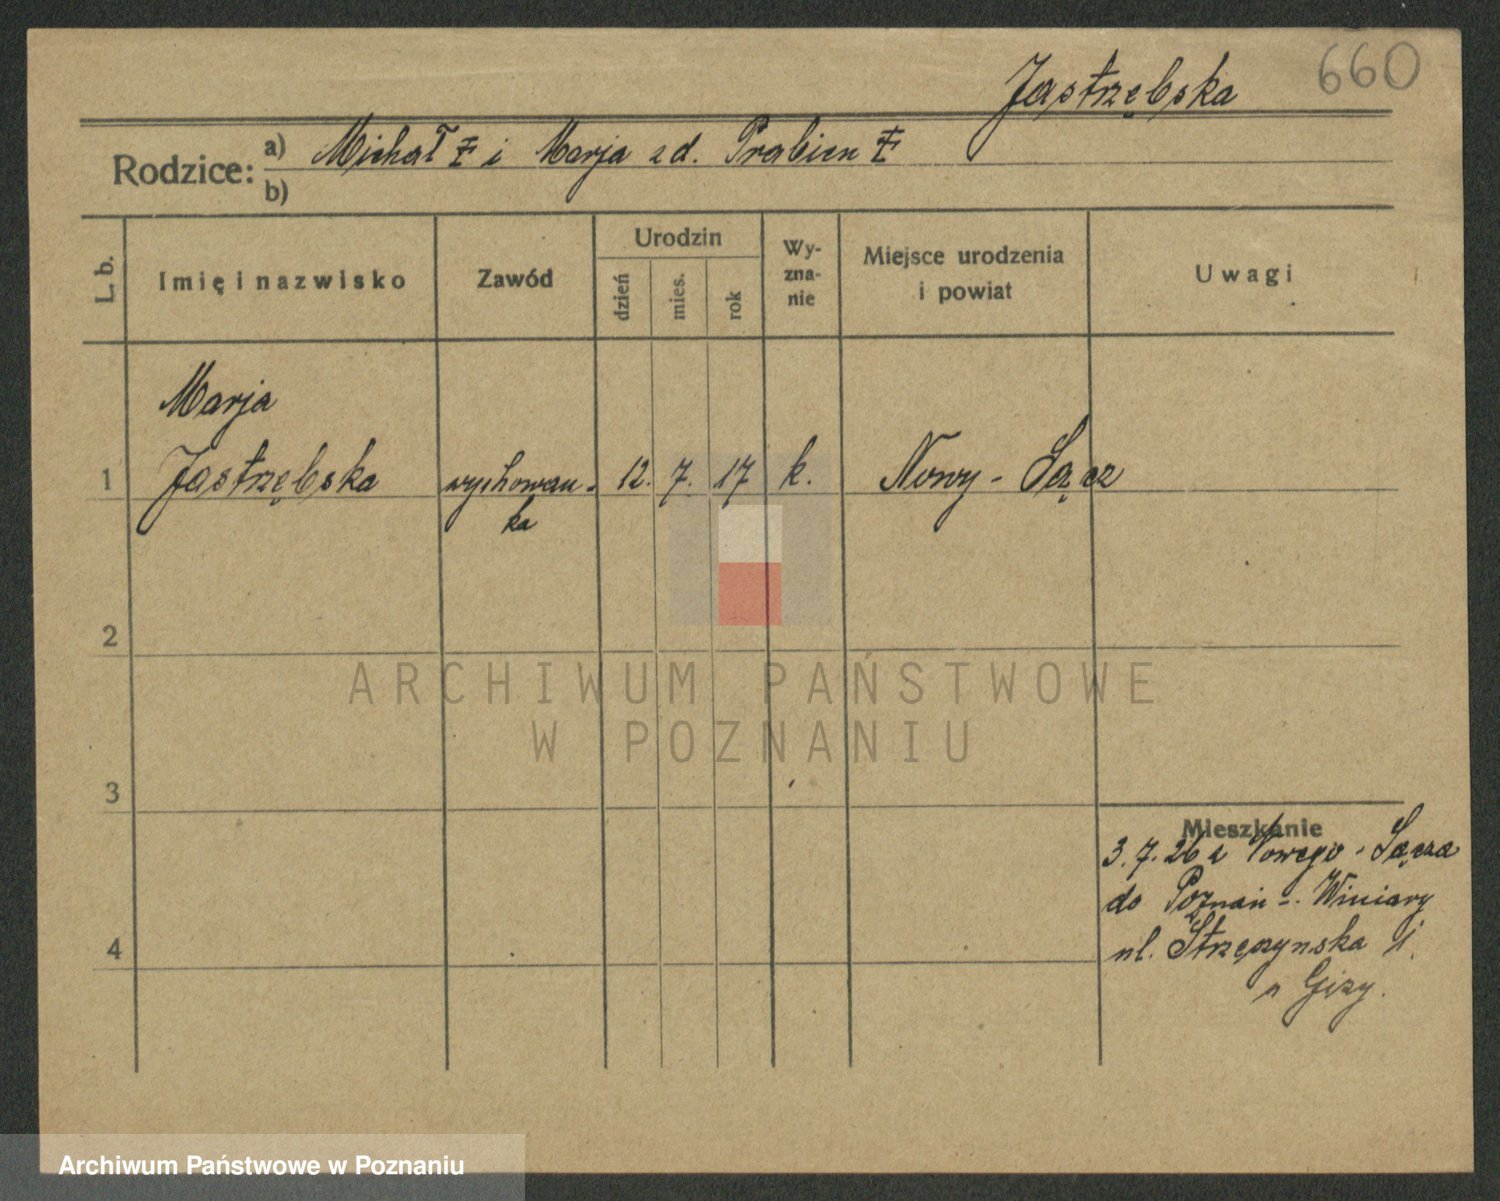 660
Jastrzębska
Rodzice: a) Michał i Marja zd. Prabien
b)
L. b. Imię i nazwisko Zawód Urodzin dzień mies. rok Wy-zna-nie Miejsce urodzenia i powiat Uwagi
Marja
1 Jastrzębska wychowan- 12. 7. 17 k. Nowy - Sącz
ka
2
ARCHIWUM PAŃSTWOWE
W POZNANIU
3
Mieszkanie
3. 7. 26 z Nowego - Sącza
do Poznań - Winiary
4 ul. Strzęszynska 1.
Gizy.
Archiwum Państwowe w Poznaniu